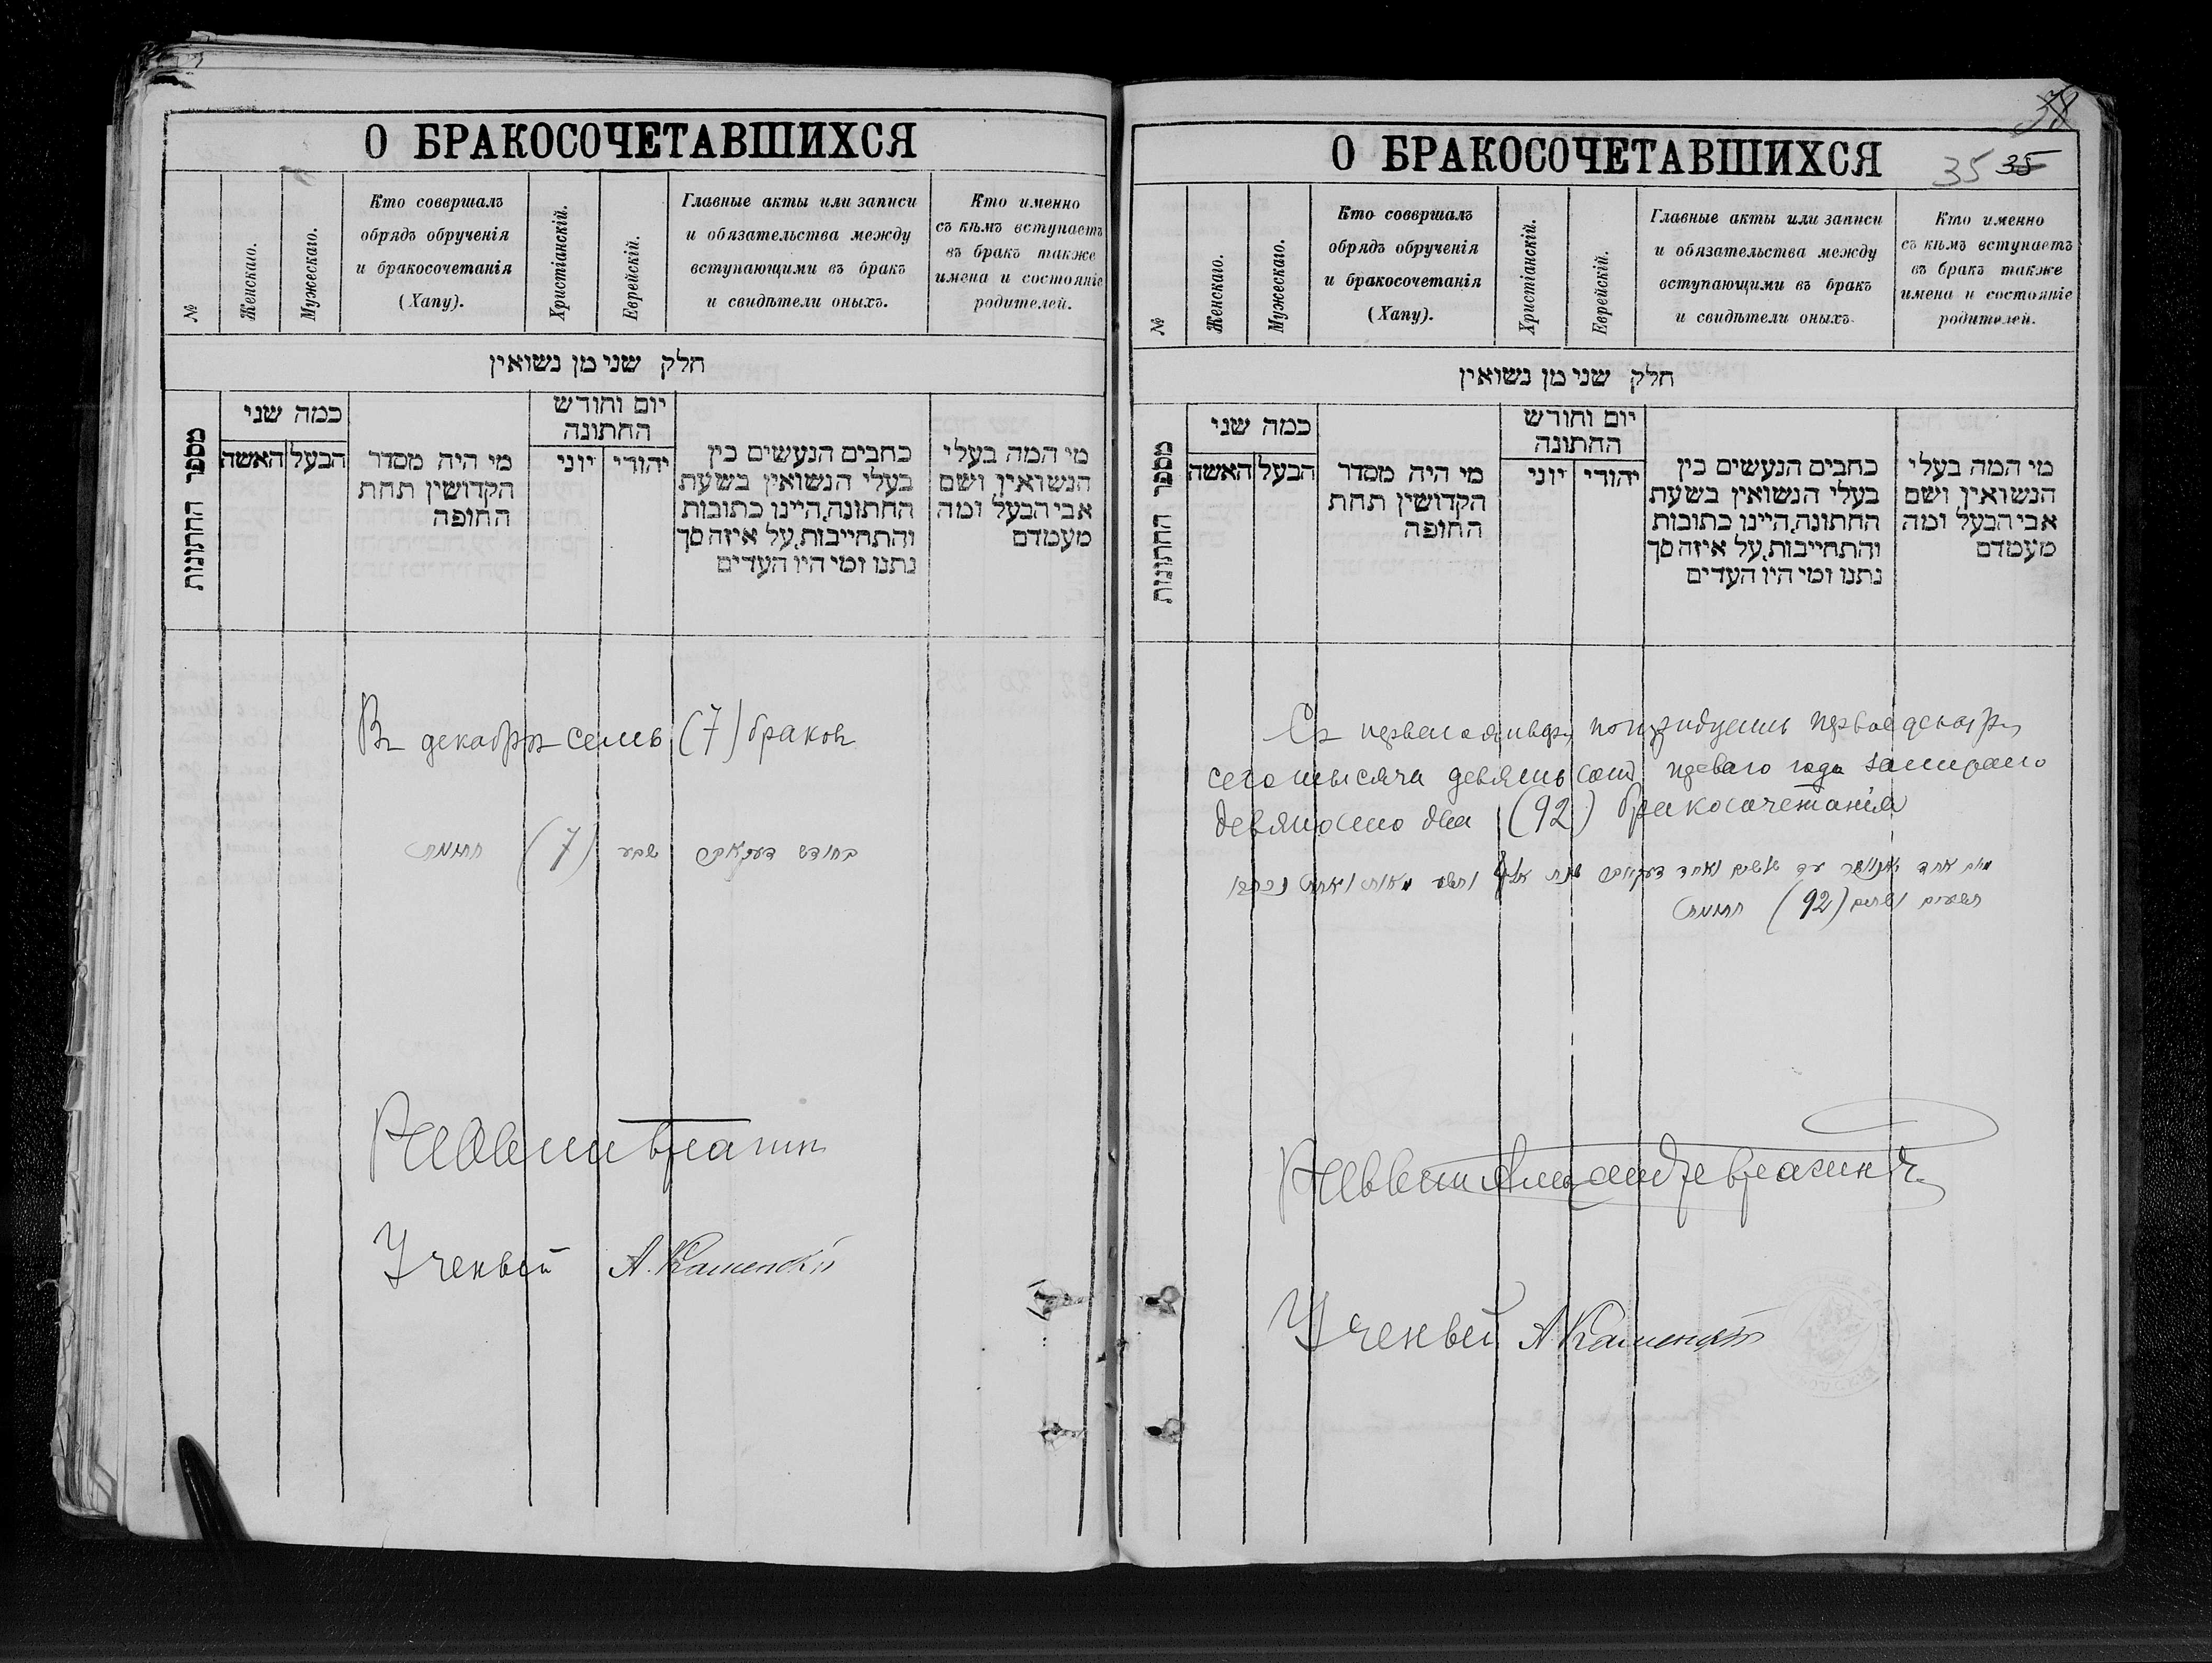 О БРАКОСОЧЕТАВШИХСЯ
№
Женскаго.
Мужескаго.
Кто соверршалъ
обрядъ обрученія
и бракосочетанія
(Хапу).
Христіанскій.
Еврейскій.
Главные акты или записи
и обязательства между
вступающими въ бракъ
и свидѣтели оныхъ.
Кто именно
съ кѣмъ вступаетъ
въ бракъ также
имена и состояніе
родителей.
חלק שני מן נשואין
מספר החתונות
כמה שני
הבעל
האשה
מי היה מסדר
הקדושין תחת
החופה
יום וחודש
החתונה
יהודי
יוני
כתבים הנעשים בין
בעלי הנשואין בשעת
החתונה,היינו כתובות
והתחייבות,על איזה סך
נתנו ומי היו העדים
מי המה בעלי
הנשואין ושם
אבי הבעל ומה
מעמדם
Въ декабрѣ семь (7) браковъ
בחודש דעקאבר שבע (7) חתונות
Ученый А. Каменскій
38
О БРАКОСОЧЕТАВШИХСЯ
35 35
№
Женскаго.
Мужескаго.
Кто соверршалъ
обрядъ обрученія
и бракосочетанія
(Хапу).
Христіанскій.
Еврейскій.
Главные акты или записи
и обязательства между
вступающими въ бракъ
и свидѣтели оныхъ.
Кто именно
съ кѣмъ вступаетъ
въ бракъ также
имена и состояніе
родителей.
חלק שני מן נשואין
מספר החתונות
כמה שני
הבעל
האשה
מי היה מסדר
הקדושין תחת
החופה
יום וחודש
החתונה
יהודי
יוני
כתבים הנעשים בין
בעלי הנשואין בשעת
החתונה,היינו כתובות
והתחייבות,על איזה סך
נתנו ומי היו העדים
מי המה בעלי
הנשואין ושם
אבי הבעל ומה
מעמדם
Съ перваго января по тридцать первое декабря
сего тысяча девятьсотъ перваго года
девяносто два (92) бракосочетанія
מיום אחד יאנוואר עד שלשים ואחד דעקאבר שנת אלף ותשע מאות ואחת
תשעים ושתים (92) חתונות
Ученый А Каменскій